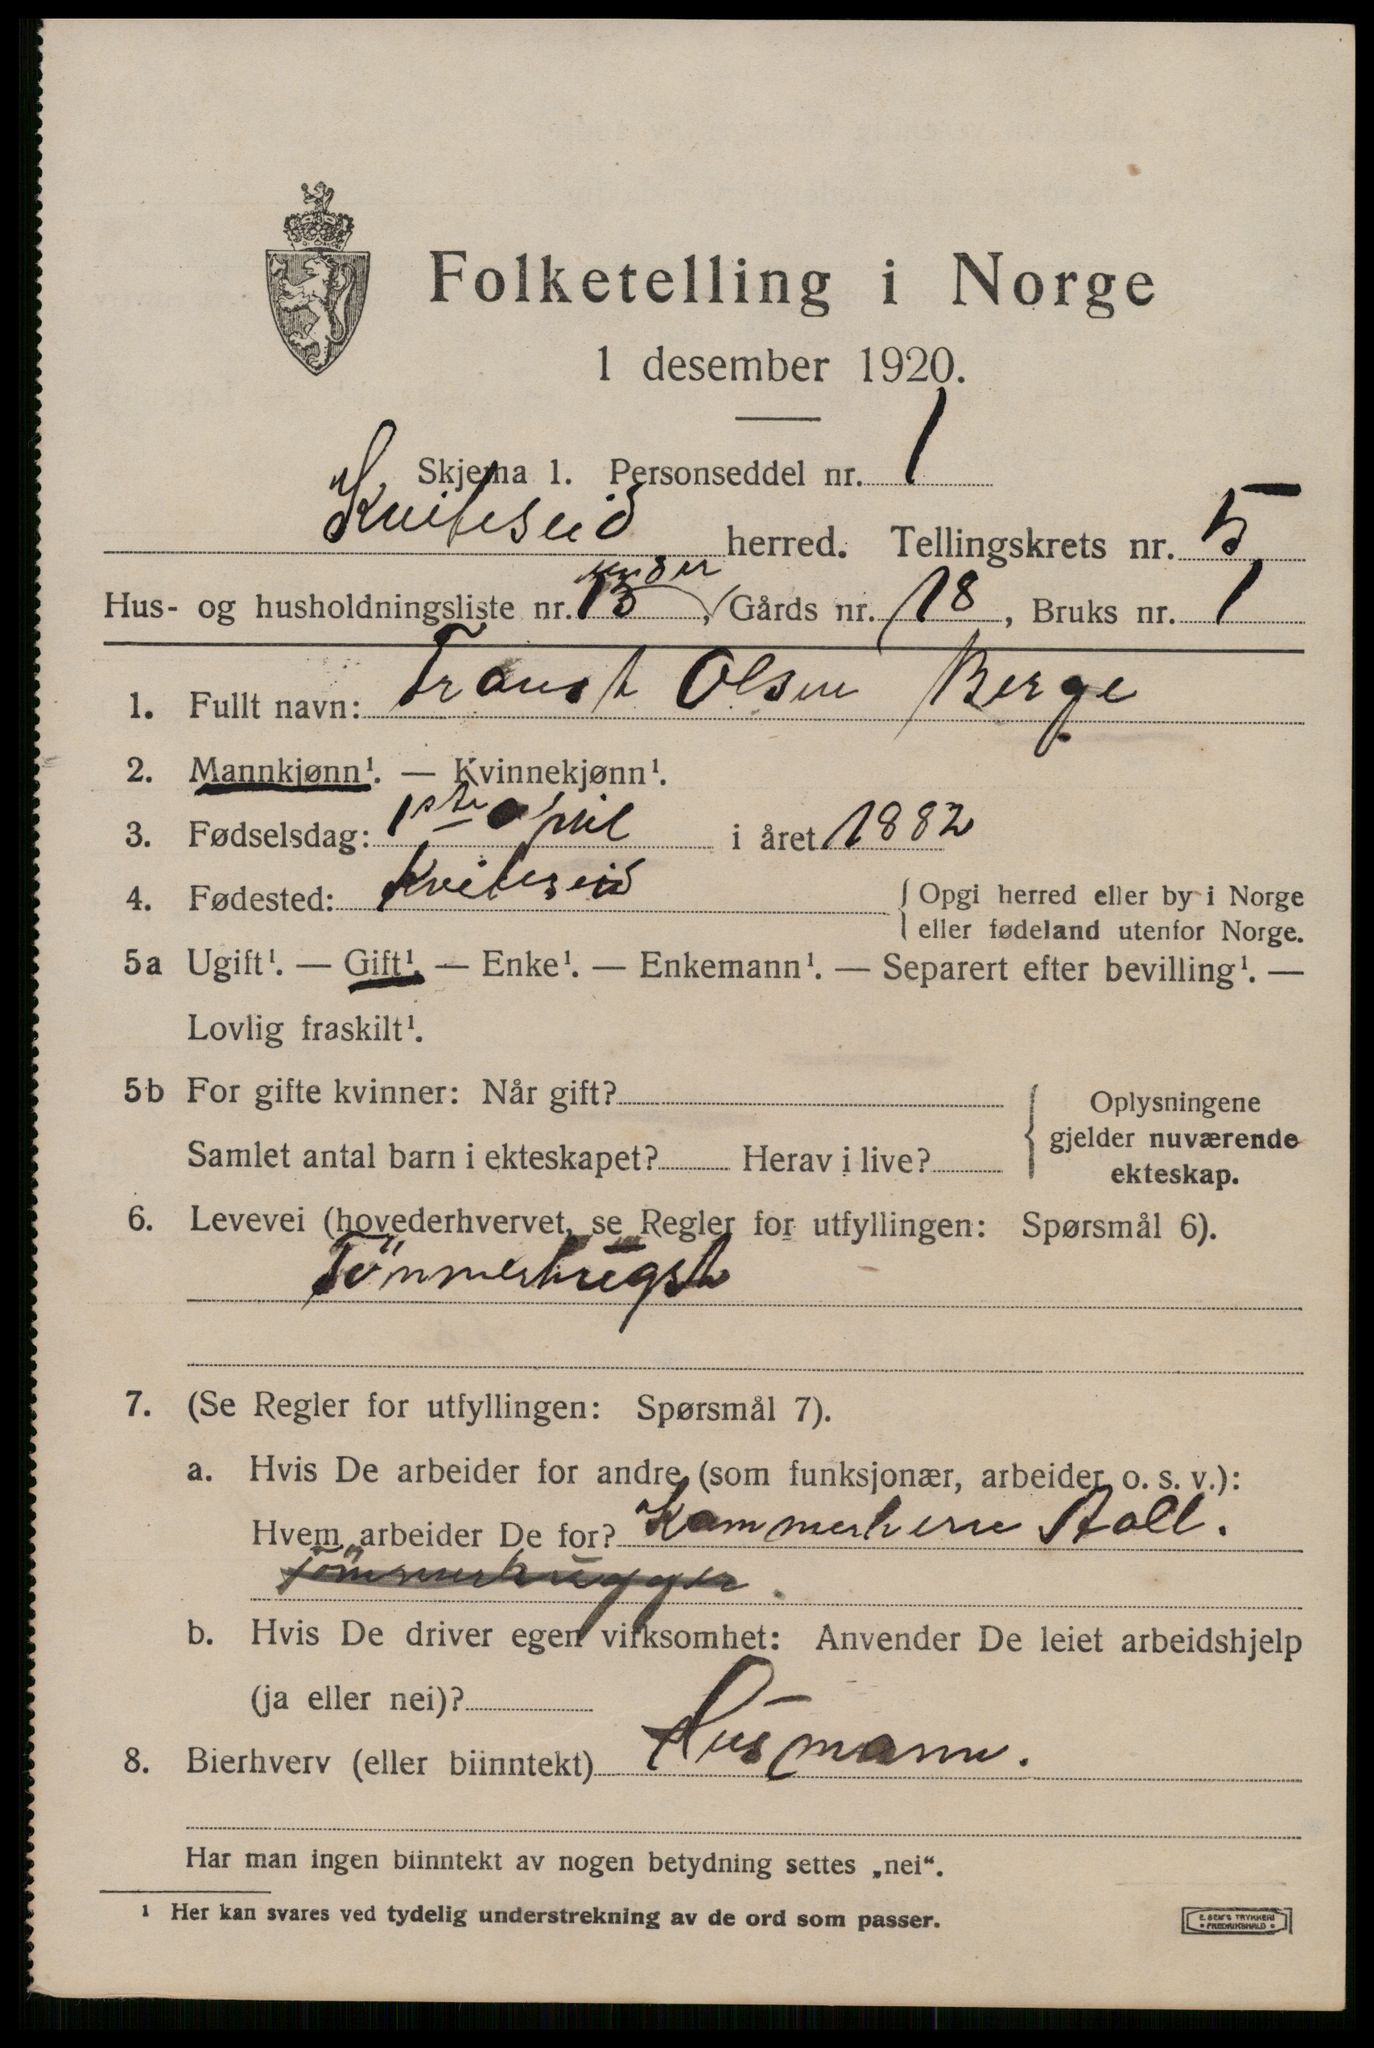 Folketelling i Norge
1 desember 1920.
Skjema 1. Personseddel nr. 1
Kviteseid herred. Tellingskrets nr. 5
under
Hus- og husholdningsliste nr. 13, Gårds nr. 18, Bruks nr. 1
1. Fullt navn: Olsen Berge
2. Mannkjønn¹. — Kvinnekjønn¹.
3. Fødselsdag: 1ste april i året 1882
4. Fødested: Kviteseid { Opgi herred eller by i Norge
eller fødeland utenfor Norge.
5a Ugift¹. — Gift¹. — Enke¹. — Enkemann¹. — Separert efter bevilling¹. —
Lovlig fraskilt¹.
5b For gifte kvinner: Når gift? { Oplysningene
gjelder nuværende
ekteskap.
Samlet antal barn i ekteskapet? Herav i live?
6. Levevei (hovederhvervet, se Regler for utfyllingen: Spørsmål 6).
Tömmerhugst
7. (Se Regler for utfyllingen: Spørsmål 7).
a. Hvis De arbeider for andre (som funksjonær, arbeider o. s. v.):
Hvem arbeider De for? Kammerherre Aall.
Tömmerhugger.
b. Hvis De driver egen virksomhet: Anvender De leiet arbeidshjelp
(ja eller nei)?
8. Bierhverv (eller biinntekt) Husmann.
Har man ingen biinntekt av nogen betydning settes „nei".
¹ Her kan svares ved tydelig understrekning av de ord som passer.
E. SEM'S TRYKKERI
FREDRIKSHALD